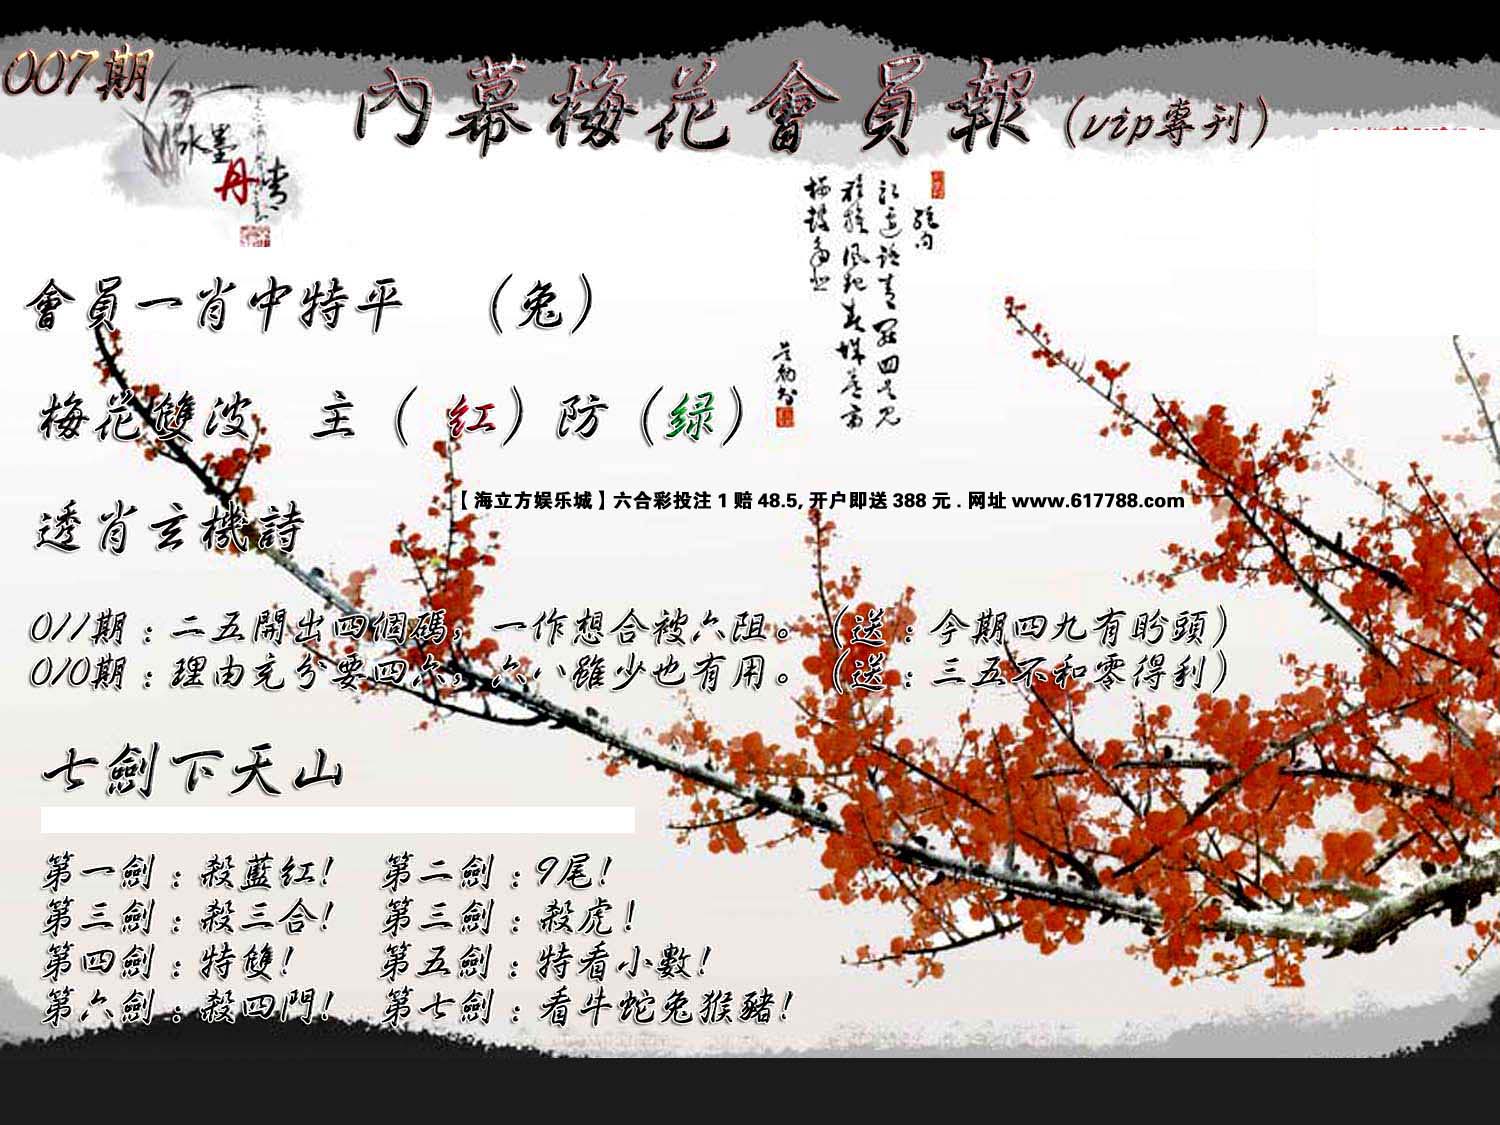 007期
內幕梅花會員報(vip專刊)
水墨
丹青
絕句
會員一肖中特平 （兔）
梅花雙波 主（紅）防（绿）
【海立方娱乐城】六合彩投注1赔48.5,开户即送388元.网址www.617788.com
透肖玄機詩
011期：二五開出四個碼，一作想合被六阻。（送：今期四九有盼頭）
010期：理由充分要四六，六八雖少也有用。（送：三五不和零得利）
七劍下天山
第一劍：殺藍红！ 第二劍：9尾！
第三劍：殺三合！ 第三劍：殺虎！
第四劍：特雙！ 第五劍：特看小數！
第六劍：殺四門！ 第七劍：看牛蛇兔猴豬！